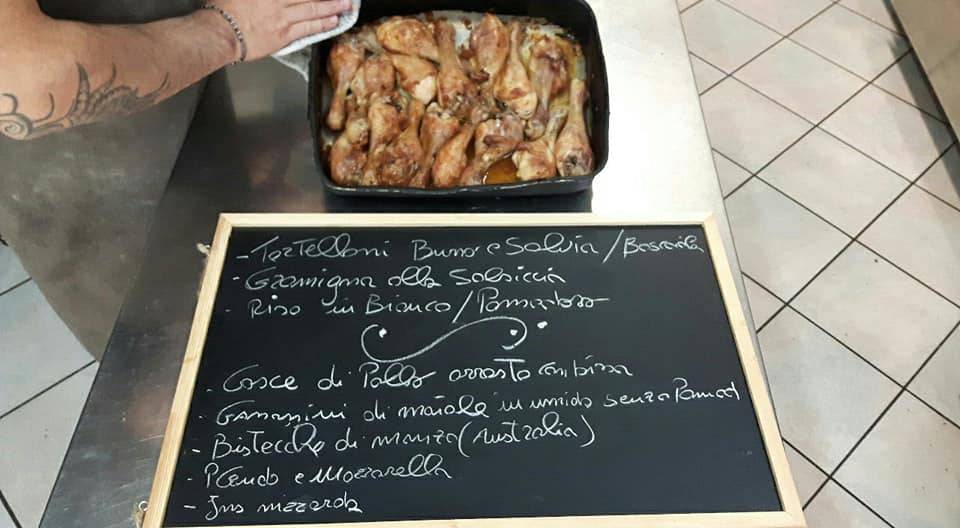 - Tortelloni Burro e Salvia / Boscaiola
- Gramigna alla Salsiccia
- Riso in Bianco / Pomodoro
- Cosce di Pollo arrosto con birra
- Ganassini di maiale in umido senza Pomod
- Bistecche di manzo (Australia)
- P Crudo e Mozzarella
- Ins nizzarda